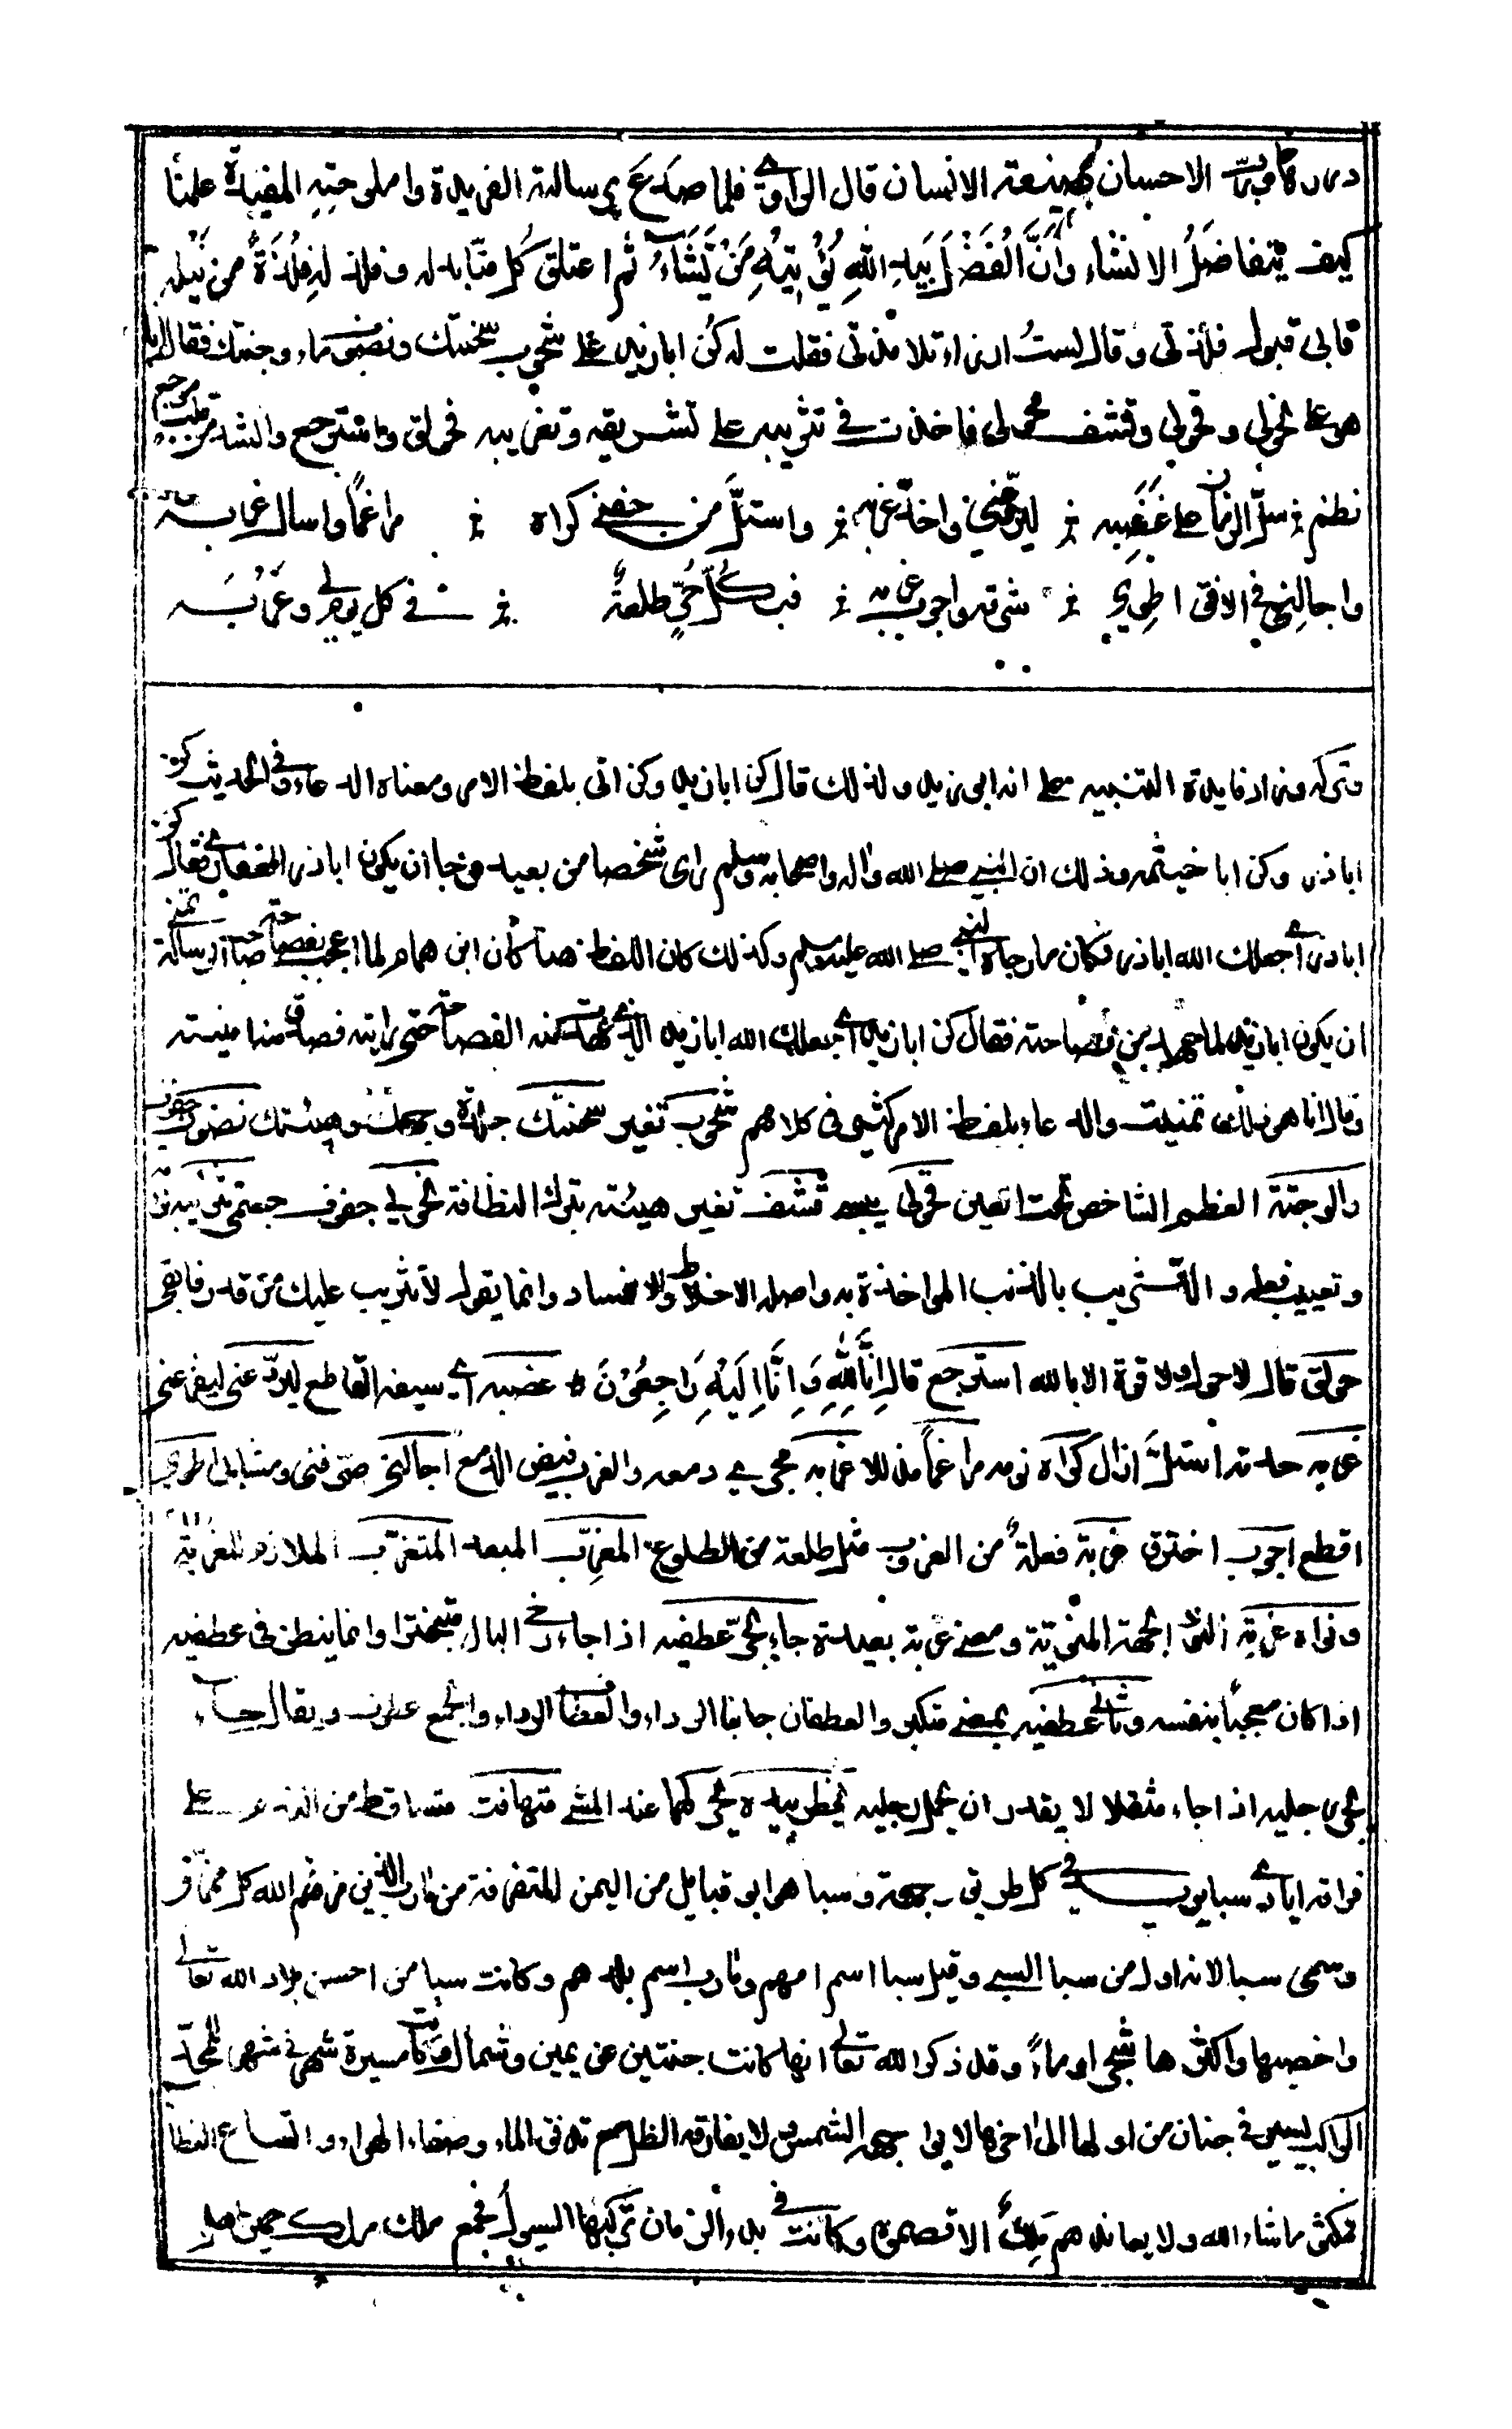 الاحسان صنيعة الانسان قال الراوي فلما صدع برسالته الفريدة واملوحته المفيدة علمنا
كيف يتفاضل الانشاء وَاَنَّ الْفَضْلَ بِيَدِ اللهِ يُؤْتِيْهِ مَنْ يَّشَآءُ ثم اعتلق كُل منّا به وفلذ له فِلْذَةً من نَيْله
فابى قبول فلذتي وقال لستُ ارزاء تلامذتي فقلت له كُن ابا زيد على شحوب سحنتك ونضوب ماء وجنتك فقال انا
هو على نحولي وقحولي وقشف محولي فاخذت في تثريبه على تشريقه وتغريبه فحولق واسترجع وانشد من قلب موجع
نظم سلّ الزمان علي عَضْبه ليروعني واحدّ غربه واستلّ من جفني كراه مراغمًا واسال غربه
واجالني في الافق اطوي شرقه واجوب غربه فبكلّ جوّ طلعةٌ في كل يوم لي وغَرْبَه
وتركه وزاد فايدة التنبيه على انه ابو زيد ولذلك قال كن ابا زيد وكن اتى بلفظ الامر ومعناه الدعاء وفي الحديث كن
اباذر وكن ابا خيثمه وذلك ان النبي صلى الله واله واصحابه وسلم راى شخصا من بعيد فرجا ان يكون اباذر الغفاري فقال كن
اباذر اي جعلك الله اباذر فكان ما رجاه النبي صلى الله عليه وسلم وكذلك كان اللفظ هنا كان ابن همام لما اعجب بفصاحة صاحب الرسالة تمنى
ان يكون ابازيد لما عهد من فصاحته فقال كن ابازيد اي جعلك الله ابازيد الذي عهدت منه الفصاحة حتى رايته فصادق منه امنيته
وقال انا هو ذلك تمنيت والدعاء بلفظ الامر كثير في كلامهم شحوب تغير سحنتك جلدة وجهك وهيئتك نضوب جفوف
والوجنة العظم الشاخص تحت العين قحولي يبسي قشف تغير هيئته بترك النظافة نحولي جفوف جسمي تثريبه
وتعييب فعله والتثريب بالذنب المواخذة به واصله الاخلاط والافساد وانما يقول لا تثريب عليك من قدر فابقى
حولق قال لا حول ولا قوة الا بالله استرجع قال اِنَّا لِلّٰهِ وَاِنَّا اِلَيْهِ رَاجِعُوْنَ * عضبه اي سيفه القاطع ليروعني ليفزعني
غربه حدته استلّ ازال كراه نومه مراغمًا مذللا غربه مجرى دمعه والغرب فيض الدمع اجالني صرفني ومشاني اطوي
اقطع اجوب اخترق غربة فعلةٌ من الغروب مثل طلعة من الطلوع المغرِّب المبعد المتغرّب الملازم للغربة
ونواه غربة النوى الجهة المنوية ومعنى غربة بعيدة جاء يجرّ عطفيه اذا جاء رخي البال متبخترا وانما ينظر في عطفيه
اذا كان معجبًا بنفسه وثاني عطفيه بمعنى متكبر والعطفان جانبا الرداء والعطاف الرداء والجمع عطوف ويقال جاء
يجر رجليه اذا جاء مثقلا لا يقدر ان يحمل رجليه يخطر بيده يحركهما عند المشي متهافت متساقط من الندم على
فواته ايادي سبا يريد في كل طريق وجهة وسبا هو ابو قبايل من اليمن المتفرقة من مارب الذين مزقهم الله كل ممزق
وسمى سبا لانه اول من سبا السبي وقيل سبا اسم امهم ومارب اسم بلدهم وكانت سبا من احسن بلاد الله تعالى
واخصبها واكثرها شجرا وماءً وقد ذكر الله تعالى انها كانت جنتين عن يمين وشمال وكانت مسيرة شهر في شهر للمجد
الراكب يسير في جنان من اولها الى اخرها لا يواجهه الشمس ولا يفارقه الظل مع تدفق الماء وصفاء الهواء واتساع الفضا
فمكثوا ماشاء الله ولا يعاندهم مَلِكٌ الا قصموه وكانت في بدء الزمان تركبها السيول فجمع ملك حمير اهل